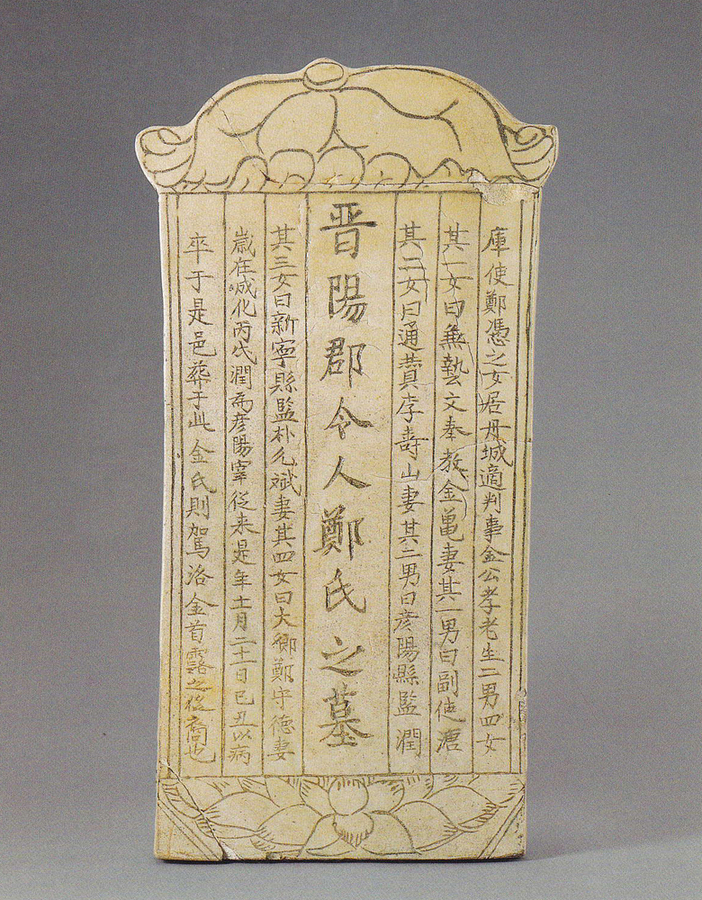 庫使鄭憑之女居丹城適判事金公孝老生二男四女
其一女曰無藝文奉教金亀妻其一男曰副使溏
其二女曰通贊李壽山妻其二男曰彦陽縣監潤
晋陽郡令人鄭氏之墓
其三女曰新寧縣監朴允斌妻其四女曰大卿鄭守徳妻
歳在成化丙戌潤為彦陽宰従来是年十一月二十一日己丑以病
卒于是邑葬于此金氏則駕洛金首露之後裔也